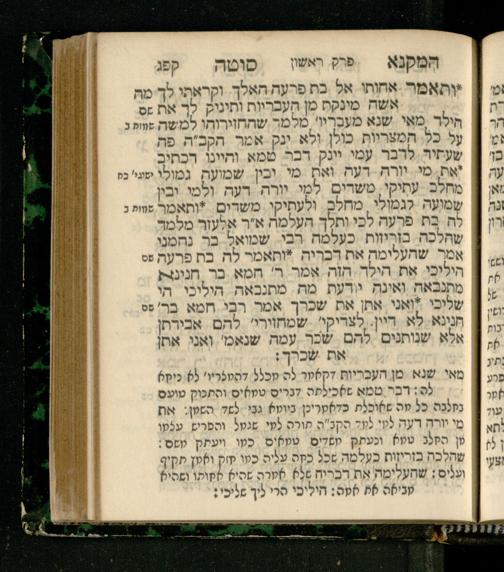 המקנא פרק ראשון סוטה קפג
*ותאמר אחותו אל בת פרעה האלך וקראתי לך מה
אשה מינקת מן העבריות ותיניק לך את שם
הילד מאי שנא מעבריו' מלמד שהחזירוהו למשה שמות ב
על כל המצריות כולן ולא ינק אמר הקב"ה פה
שעתיד לדבר עמי יינק דבר טמא והיינו דכתיב
*את מי יורה דעה ואת מי יבין שמועה גמולי ישעי' כח
מחלב עתיקי משדים למי יורה דעה ולמי יבין
שמועה לגמולי מחלב ולעתיקי משדים *ותאמר שמות ב
לה בת פרעה לכי ותלך העלמה א"ר אלעזר מלמד
שהלכה בזריזות כעלמה רבי שמואל בר נחמני
אמר שהעלימה את דבריה *ותאמר לה בת פרעה שם
היליכי את הילד הזה אמר ר' חמא בר חנינא
מתנבאה ואינה יודעת מה מתנבאה היליכי הי
שליכי *ואני אתן את שכרך אמר רבי חמא בר' שם
חנינא לא דיין לצדיקי' שמחזירי' להם אבידתן
אלא שנותנים להם שכר עמה שנאמ' ואני אתן
את שכרך:
מאי שנא מן העבריות דקאמר לה מכלל דהמצריו' לא ניקא
לה: דבר טמא שאכילתה דברים טמאים והתינוק טועם
בחלבה כל מה שאוכלת כדאמרינן ביומא גבי לשד השמן: את
מי יורה דעה למי למד הקב"ה תורה למי שגמל והפריש עצמו
מן החלב טמא ונעתק משדים טמאים כמו ויעתק משם:
שהלכה בזריזות כעלמה שכל כחה עליה כמו חזק ואמן תקיף
ועלים: שהעלימה את דבריה שלא אמרה שהיא אחותו ושהיא
מביאה את אמה: היליכי הרי ליך שליכי: